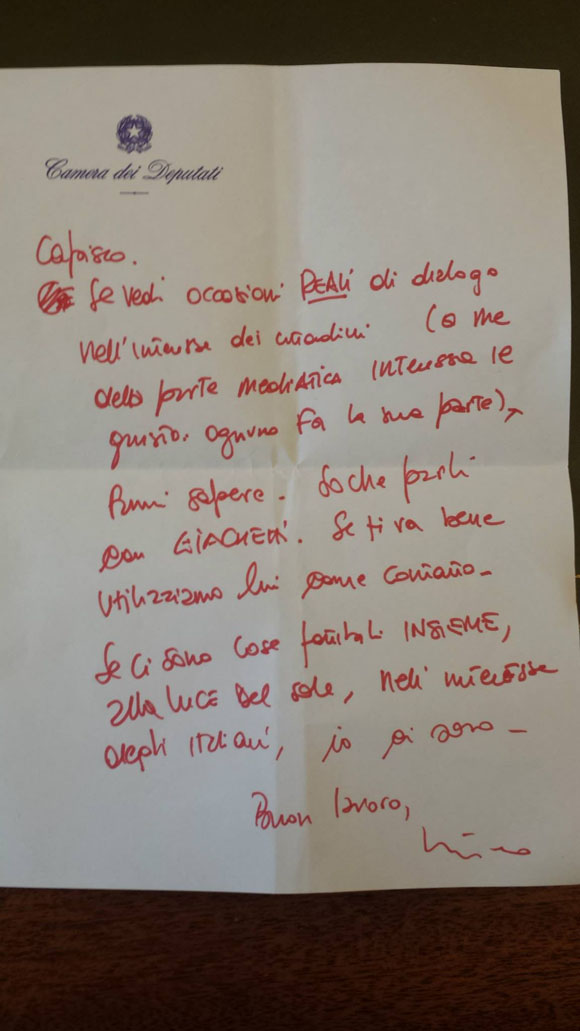 Camera dei Deputati
Capisco.
Se vedi occasioni REALI di dialogo
nell'interesse dei cittadini (a me
della parte mediatica interessa il
giusto. Ognuno fa la sua parte),
fammi sapere. So che parli
con GIACHETTI. Se ti va bene
utilizziamo lui come contatto -
Se ci sono cose fattibili INSIEME,
alla luce del sole, nell'interesse
degli italiani, io ci sono -
Buon lavoro,